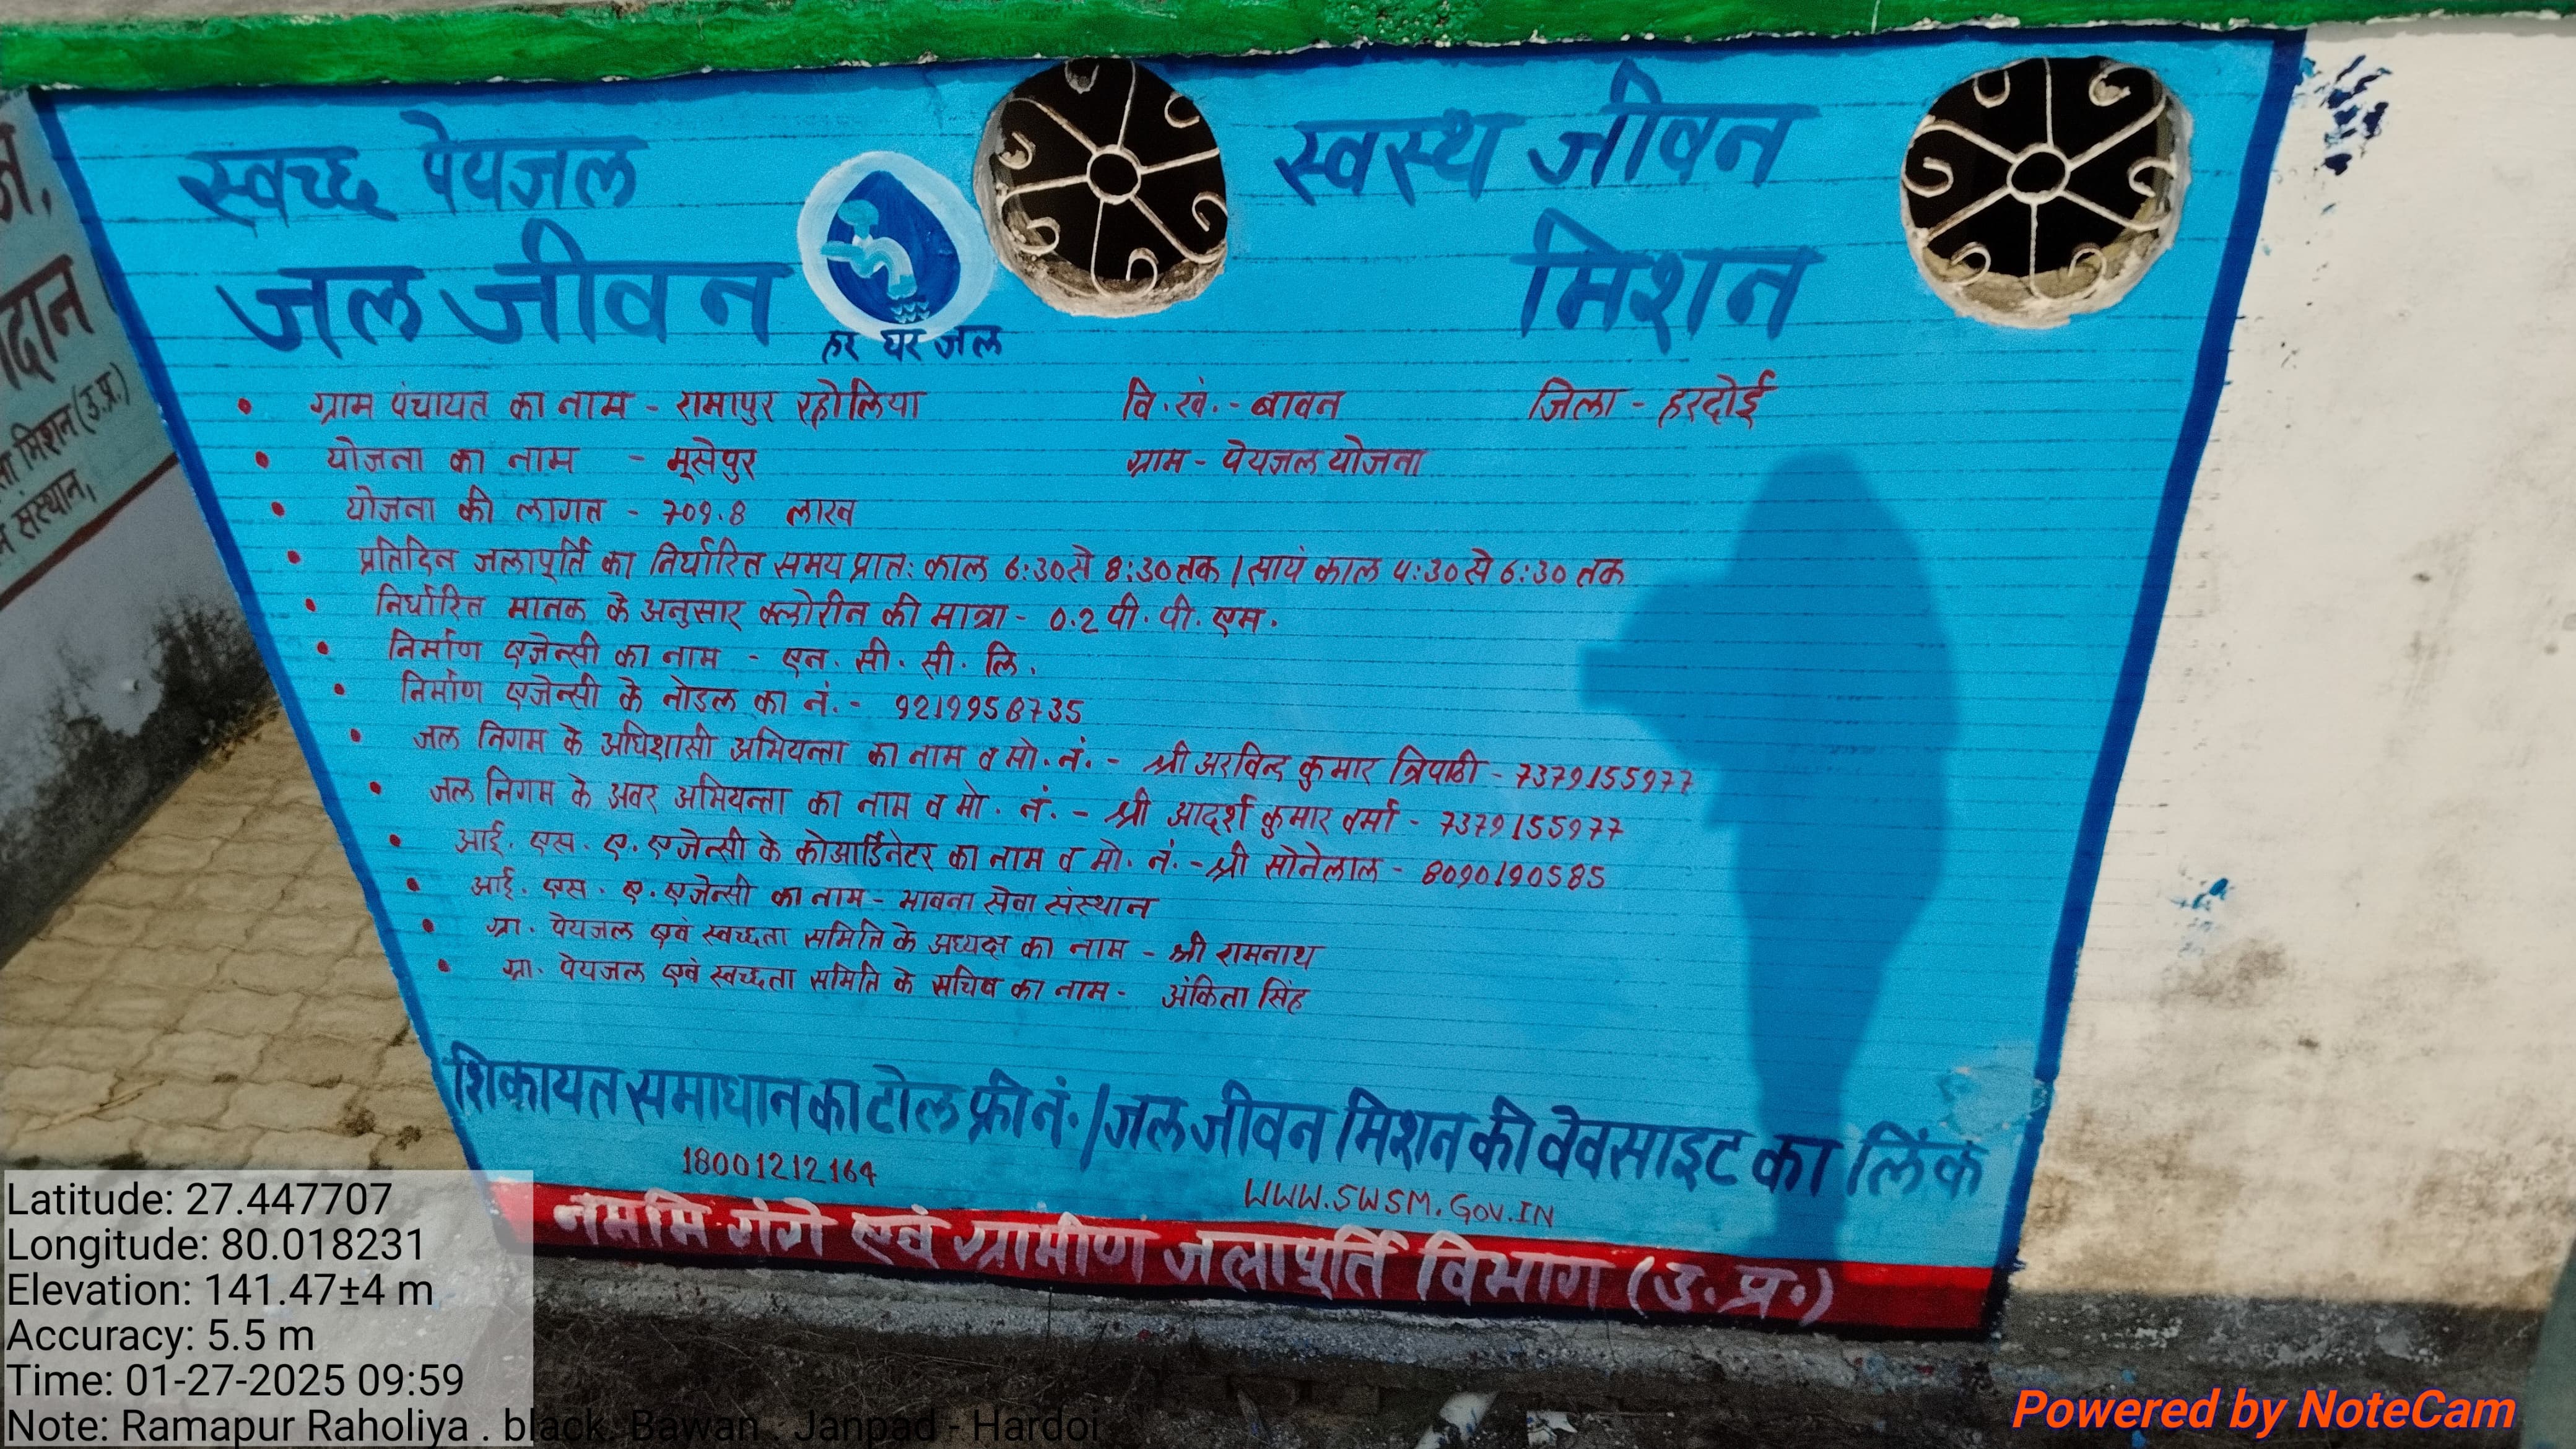 स्वच्छ पेयजल
स्वस्थ जीवन
जल जीवन
मिशन
हर घर जल
• ग्राम पंचायत का नाम - रामापुर रहोलिया वि.खं.- बावन जिला - हरदोई
• योजना का नाम - मूसेपुर ग्राम - पेयजल योजना
• योजना की लागत - 709.8 लाख
• प्रतिदिन जलापूर्ति का निर्धारित समय प्रात: काल 6:30 से 8:30 तक / सायं काल 4:30 से 6:30 तक
• निर्धारित मानक के अनुसार क्लोरीन की मात्रा - 0.2 पी. पी. एम.
• निर्माण एजेन्सी का नाम - एन. सी. सी. लि.
• निर्माण एजेन्सी के नोडल का नं.- 9219958735
• जल निगम के अधिशासी अभियन्ता का नाम व मो. नं. - श्री अरविन्द कुमार त्रिपाठी - 7379155977
• जल निगम के अवर अभियन्ता का नाम व मो. नं. - श्री आदर्श कुमार वर्मा - 7379155977
• आई. एस. ए. एजेन्सी के कोआर्डिनेटर का नाम व मो. नं.- श्री सोनेलाल - 8090190585
• आई. एस. ए. एजेन्सी का नाम - भावना सेवा संस्थान
• ग्रा. पेयजल एवं स्वच्छता समिति के अध्यक्ष का नाम - श्री रामनाथ
• ग्रा. पेयजल एवं स्वच्छता समिति के सचिव का नाम - अंकिता सिंह
शिकायत समाधान का टोल फ्री नं. / जल जीवन मिशन की वेवसाइट का लिंक
18001212164
WWW.SWSM.GOV.IN
नमामि गंगे एवं ग्रामीण जलापूर्ति विभाग (उ.प्र.)
दान
मिशन (उ.प्र.)
संस्थान,
Latitude: 27.447707
Longitude: 80.018231
Elevation: 141.47±4 m
Accuracy: 5.5 m
Time: 01-27-2025 09:59
Note: Ramapur Raholiya . black. Bawan . Janpad - Hardoi
Powered by NoteCam